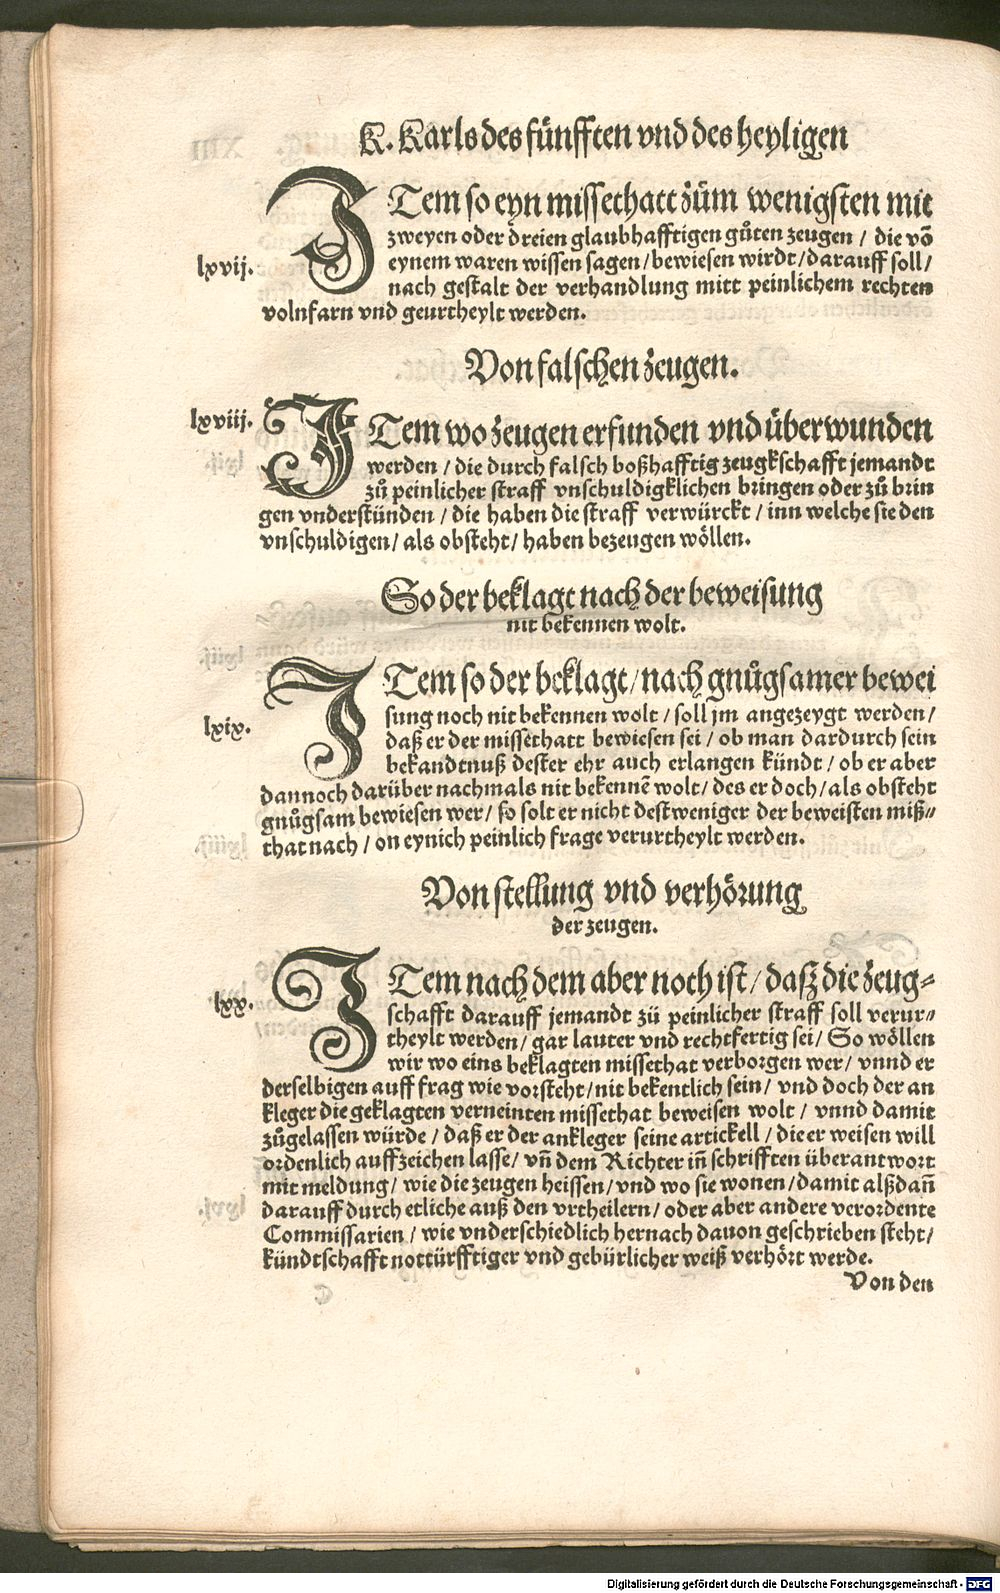 K. Karls des fünfften vnd des heyligen
lxvij.
ITem so eyn missethatt zům wenigsten mit
zweyen oder dreien glaubhafftigen gůten zeugen / die vō
eynem waren wissen sagen / bewiesen wirdt / darauff soll /
nach gestalt der verhandlung mitt peinlichem rechten
volnfarn vnd geurtheylt werden.
Von falschen zeugen.
lxviij.
ITem wo zeugen erfunden vnd überwunden
werden / die durch falsch boßhafftig zeugkschafft jemandt
zů peinlicher straff vnschuldigklichen bringen oder zů brin
gen vnderstünden / die haben die straff verwürckt / inn welche sie den
vnschuldigen / als obsteht / haben bezeugen wöllen.
So der beklagt nach der beweisung
nit bekennen wolt.
lxix.
ITem so der beklagt / nach gnůgsamer bewei
sung noch nit bekennen wolt / soll jm angezeygt werden /
daß er der missethatt bewiesen sei / ob man dardurch sein
bekandtnuß dester ehr auch erlangen kündt / ob er aber
dannoch darüber nachmals nit bekennē wolt / des er doch / als obsteht
gnůgsam bewiesen wer / so solt er nicht destweniger der beweisten miß⸗
that nach / on eynich peinlich frage verurtheylt werden.
Von stellung vnd verhörung
der zeugen.
lxx.
ITem nach dem aber noch ist / daß die zeug⸗
schafft darauff jemandt zů peinlicher straff soll verur⸗
theylt werden / gar lauter vnd rechtfertig sei / So wöllen
wir wo eins beklagten missethat verborgen wer / vnnd er
derselbigen auff frag wie vorsteht / nit bekentlich sein / vnd doch der an
kleger die geklagten verneinten missethat beweisen wolt / vnnd damit
zůgelassen würde / daß er der ankleger seine artickell / die er weisen will
ordenlich auffzeichen lasse / vñ dem Richter iñ schrifften überantwort
mit meldung / wie die zeugen heissen / vnd wo sie wonen / damit alßdañ
darauff durch etliche auß den vrtheilern / oder aber andere verordente
Commissarien / wie vnderschiedlich hernach dauon geschrieben steht /
kündtschafft nottürfftiger vnd gebürlicher weiß verhört werde.
Von den
Digitalisierung gefördert durch die Deutsche Forschungsgemeinschaft - DFG